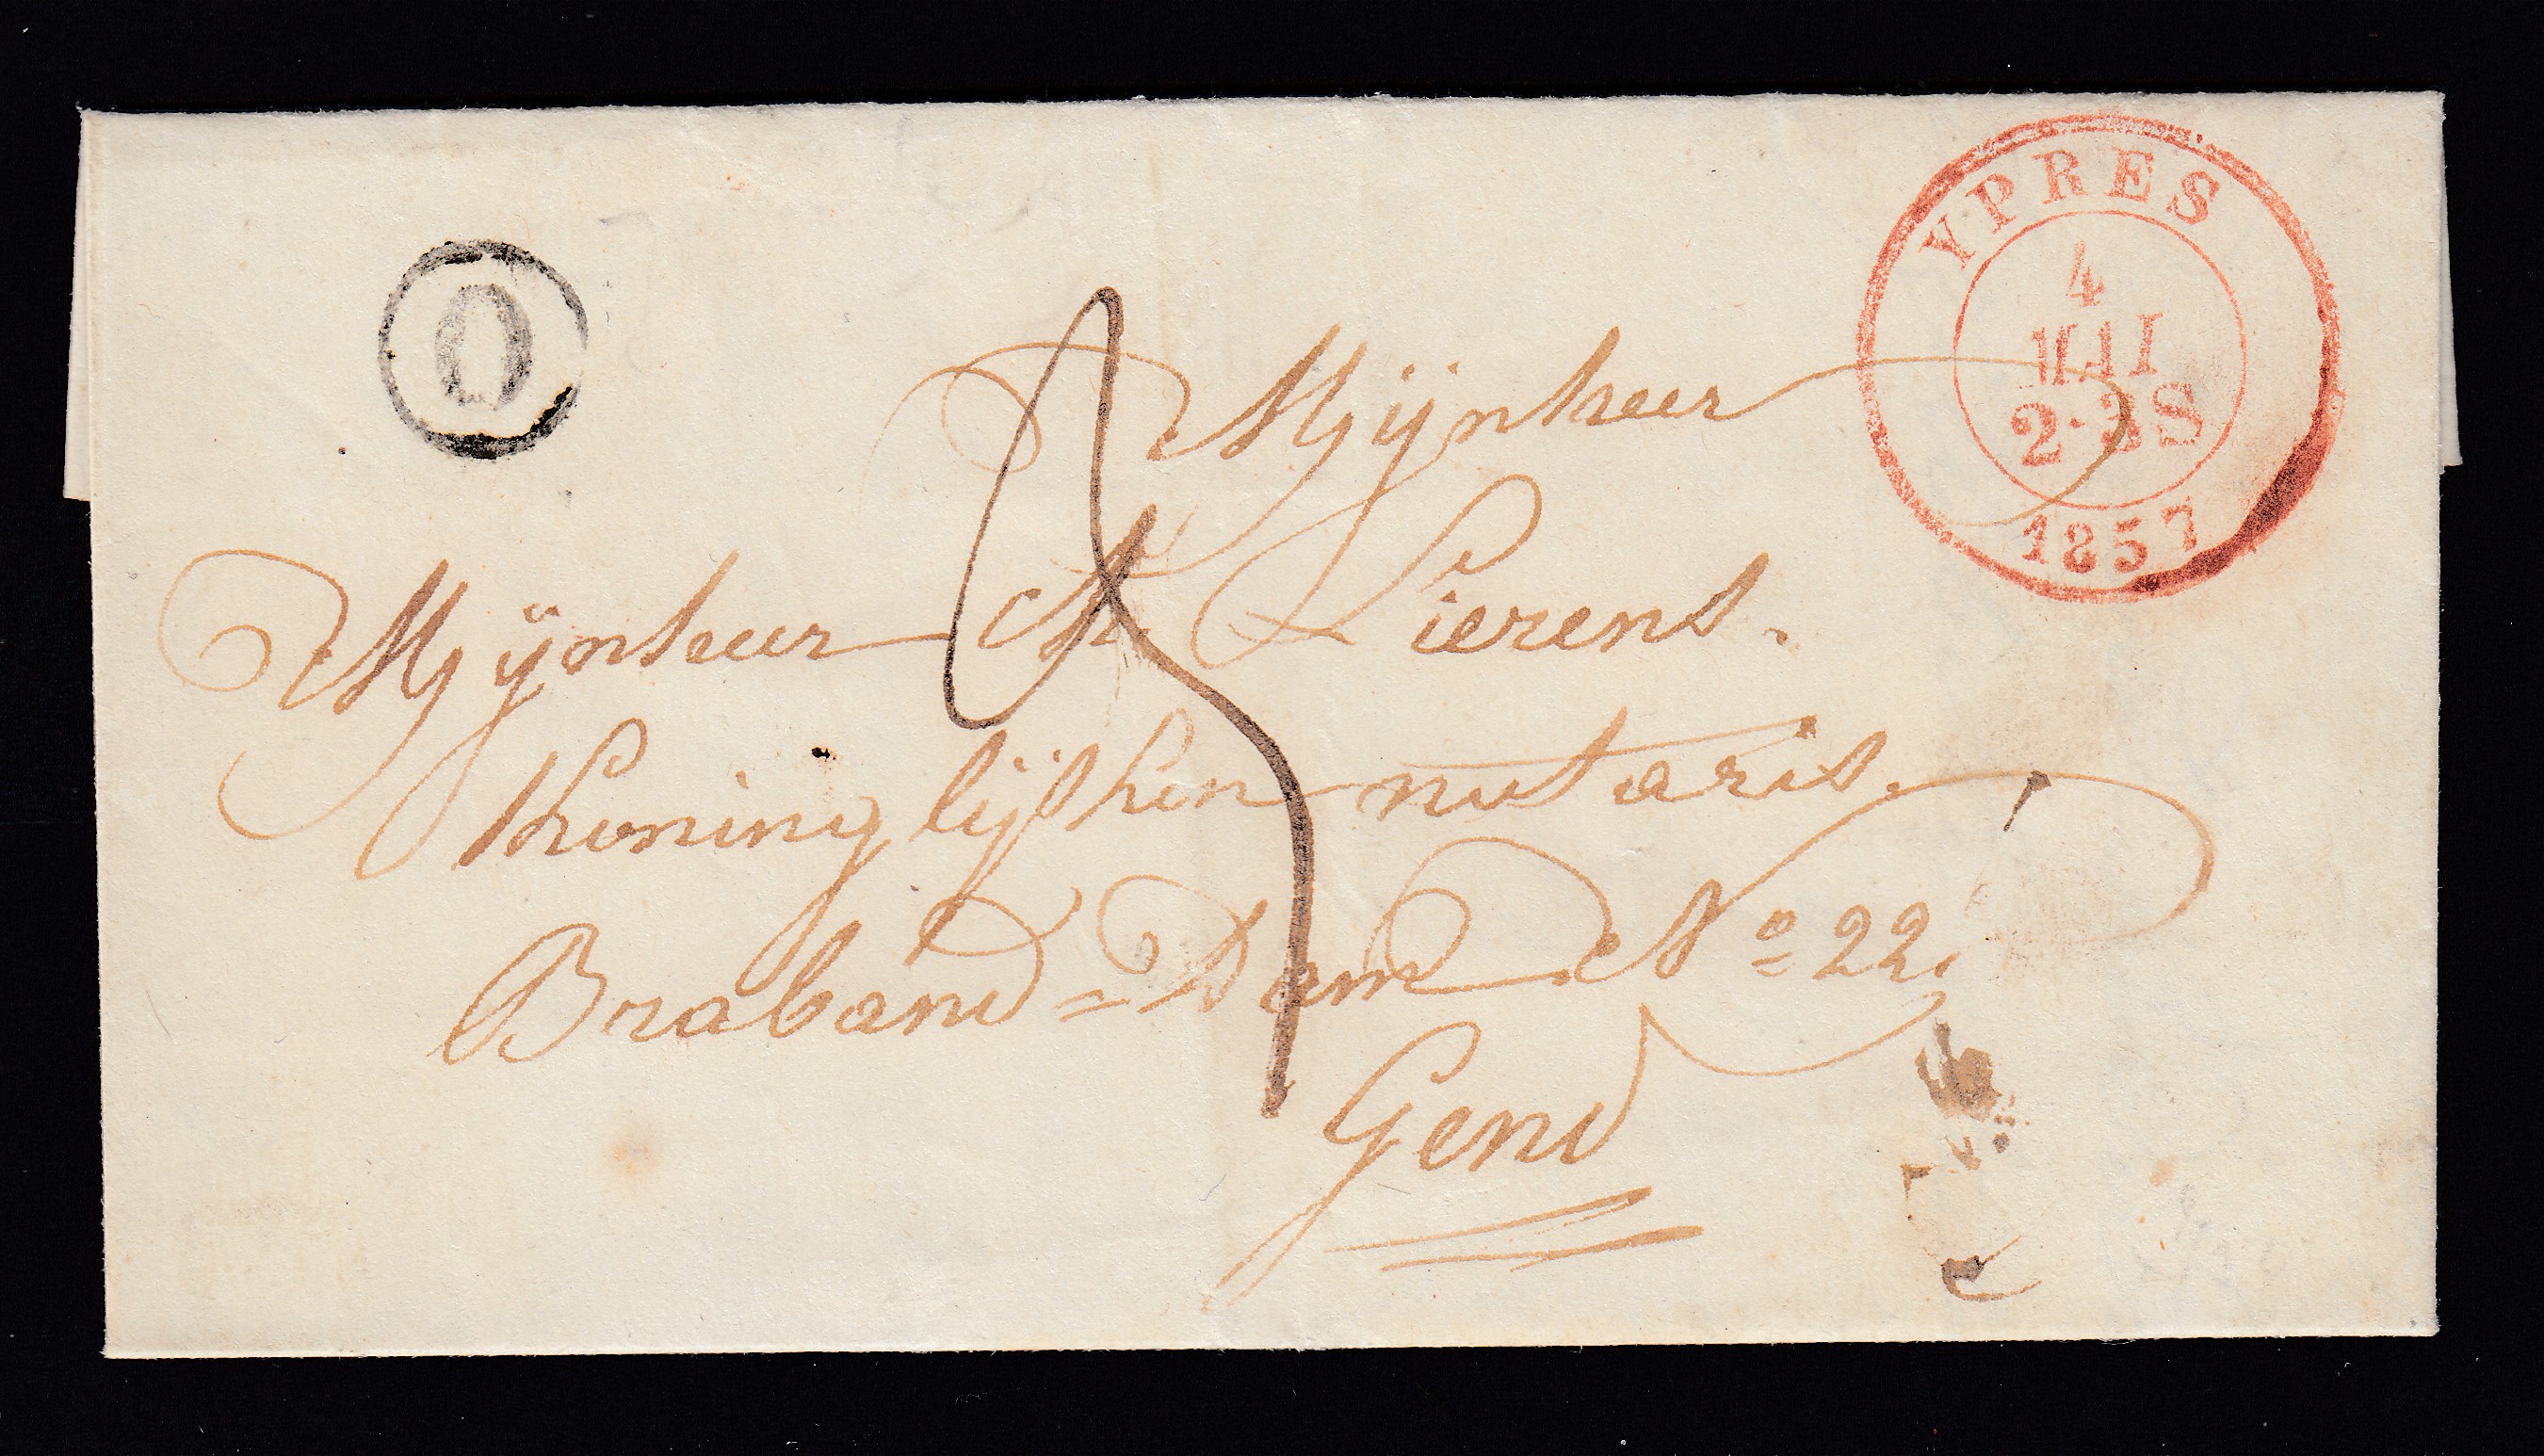 YPRES
4
MAI
2·3S
1857
O
Mÿnheer
Mÿnheer Lierens.
Koninglijken notaris.
Braband=Dam Nº 22.
Gend